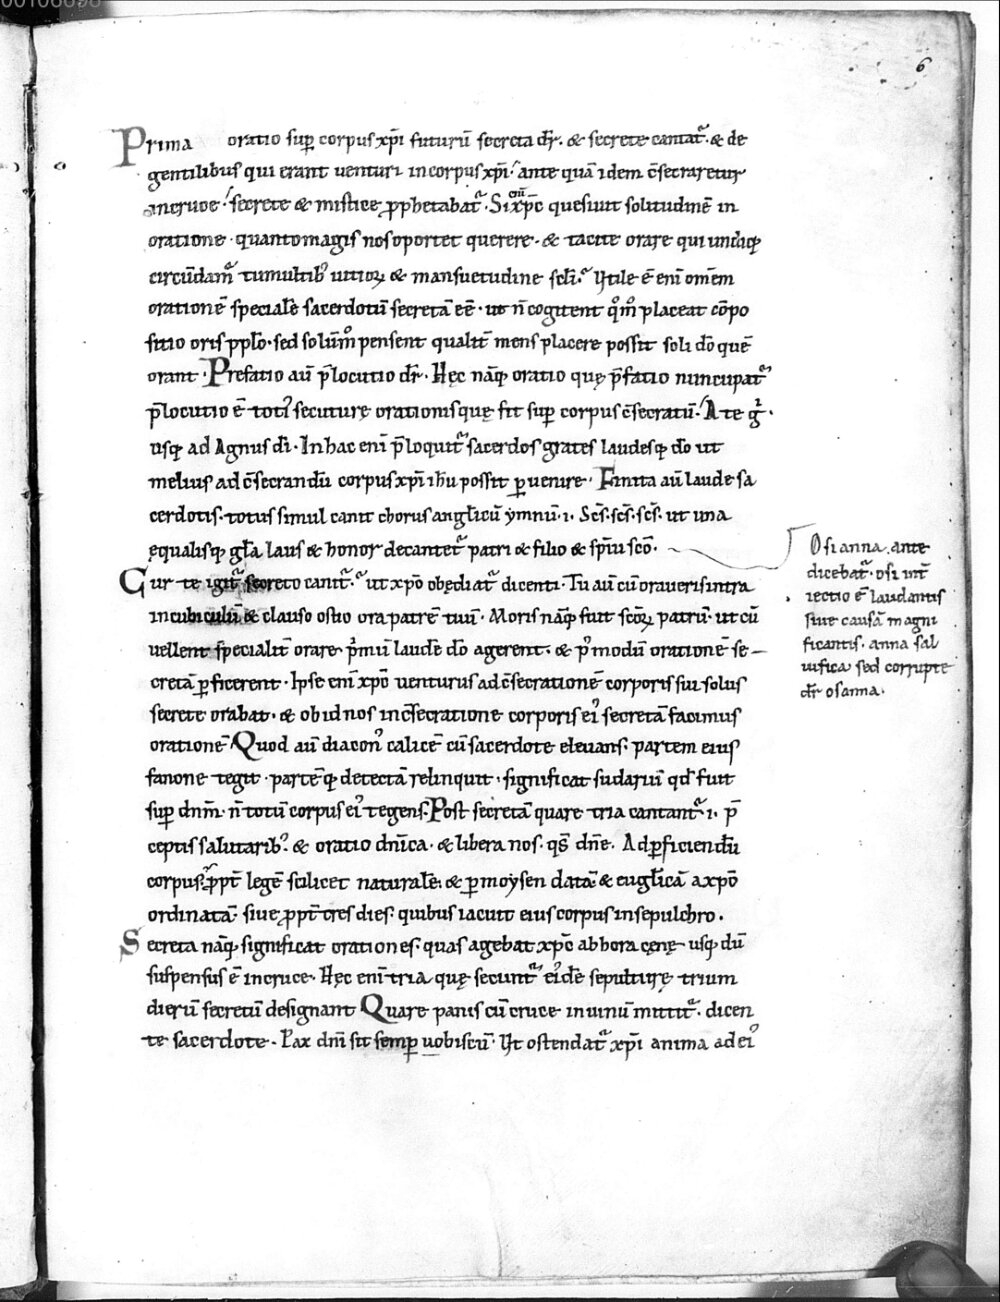 6
Prima oratio sup̄ corpus xp̄i futurū secreta dr̄. & secrete cantat᷑. & de
gentilibus qui erant uenturi incorpus xp̄i. ante quā idem c̄secraretur
incruce. secrete & mistice pphetabat᷑. Si enī xp̄c quesiuit solitudinē in
oratione. quantomagis nos oportet querere. & tacite orare qui undiq;
circūdam᷑ tumultib; uitioꝝ & mansuetudine scl̄i. Vtile ē enī om̄em
orationē speciale sacerdotū secretā eē. ut n̄ cogitent qm̊ placeat cōpo
sitio oris pplo. sed solūm pensent qualit̄ mens placere possit soli dō quē
orant. Prefatio aū p̄locutio dr̄. Hęc nāq; oratio quę p̄fatio nuncupat᷑
p̄locutio ē toti; secuturę orationis quę fit sup̄ corpus c̄secratū. A te g̊.
usq; ad Agnus dī. In hac enī p̄loquit᷑ sacerdos grates laudesq; dō ut
melius ad c̄secrandū corpus xp̄i ih̄u possit ꝑuenire. Finita aū laude sa
cerdotis. totus simul canit chorus angl̄icū ymnū. i. Scs̄. scs̄. scs̄. ut una
ęqualisq; gl̄a laus & honor decantet᷑ patri & filio & sp̄iu scō.
Cur te igit᷑ secreto canit᷑. ut xp̄o obędiat᷑ dicenti. Tu aū cū oraueris intra
in cubiculū & clauso ostio ora patrē tuū. Moris nāq; fuit scōꝝ patrū. ut cū
uellent specialit̄ orare p̄mū laudē dō agerent. & p̄ modū orationē se-
cretā ꝑficerent. Ipse enī xp̄c uenturus ad c̄secrationē corporis sui solus
secrete orabat. & ob id nos in c̄secratione corporis ei; secretā facimus
orationē Quod aū diacon; calicē cū sacerdote eleuans. partem eius
fanone tegit. partēq; detectā relinquit. significat sudariū qd̄ fuit
sup̄ dnm̄. n̄ totū corpus ei; tegens. Post secretā quare tria cantant᷑. i. p̄
ceptis salutarib;. & oratio dn̄ica. & libera nos. qs̄ dn̄e. Ad ꝑficiendū
corpus. ꝓpt̄ legē scilicet naturalē. & ꝑ moysen datā. & eugl̄icā a xp̄o
ordinatā. siue ꝓpt̄ tres dies. quibus iacuit eius corpus insepulchro.
Secreta nāq; significat orationes. quas agebat xp̄c ab hora cęnę usq; dū
suspensus ē incruce. Hęc enī tria quę secunt᷑ ei;dē sepulturę trium
dierū secretū designant Quare panis cū cruce in uinū mittit᷑. dicen
te sacerdote. Pax dn̄i sit semp̄ uobiscū. Vt ostendat᷑ xp̄i anima ad ei;
Osianna ante
dicebat᷑. osi int̄
iectio ē laudantis
siue causā magni
ficantis. anna sal
uifica sed corrupte
dr̄ osanna.